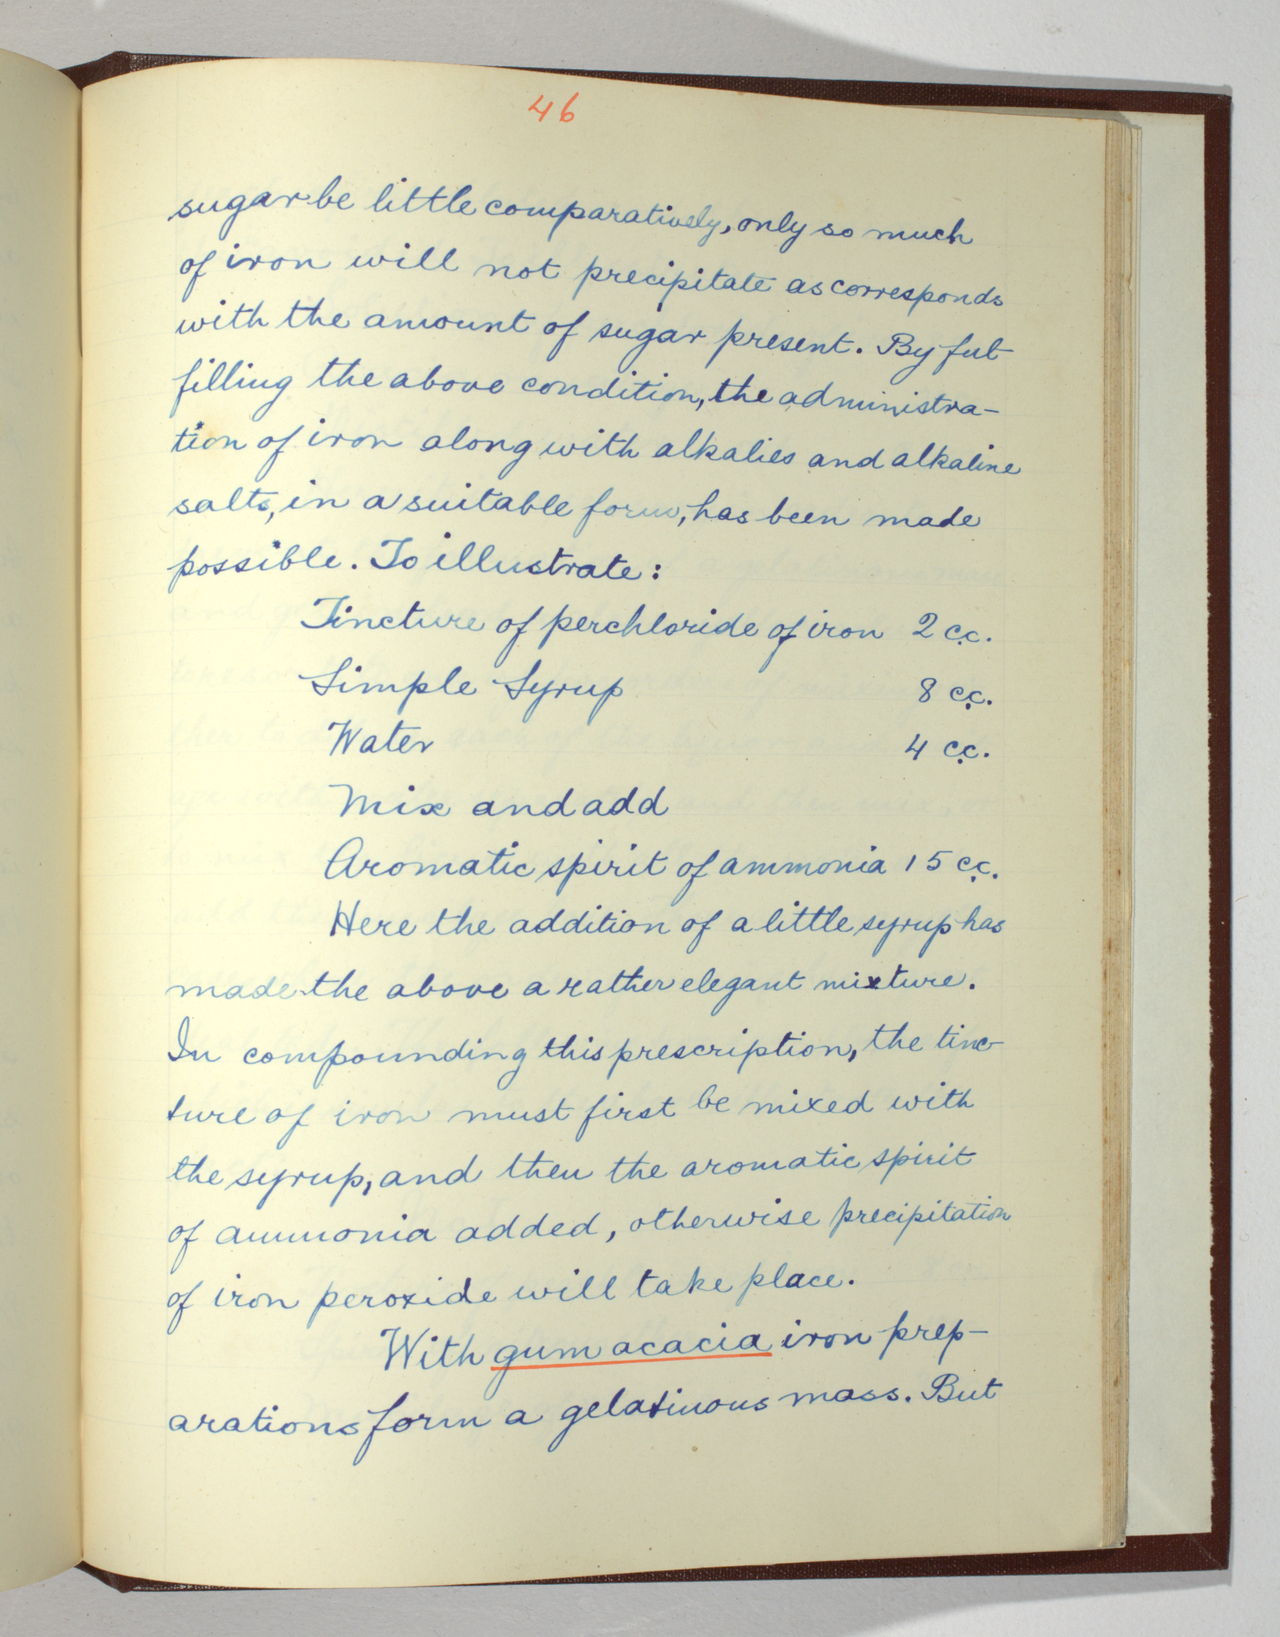 46
sugar be little comparatively, only so much
of iron will not precipitate as corresponds
with the amount of sugar present. By ful-
filling the above condition, the administra-
tion of iron along with alkalies and alkaline
salts, in a suitable form, has been made
possible. To illustrate:
Tincture of perchloride of iron 2 c.c.
Simple Syrup 8 c.c.
Water 4 c.c.
Mix and add
Aromatic spirit of ammonia 15 c.c.
Here the addition of a little syrup has
made the above a rather elegant mixture.
In compounding this prescription, the tinc-
ture of iron must first be mixed with
the syrup, and then the aromatic spirit
of ammonia added, otherwise precipitation
of iron peroxide will take place.
With gum acacia iron prep-
arations form a gelatinous mass. But